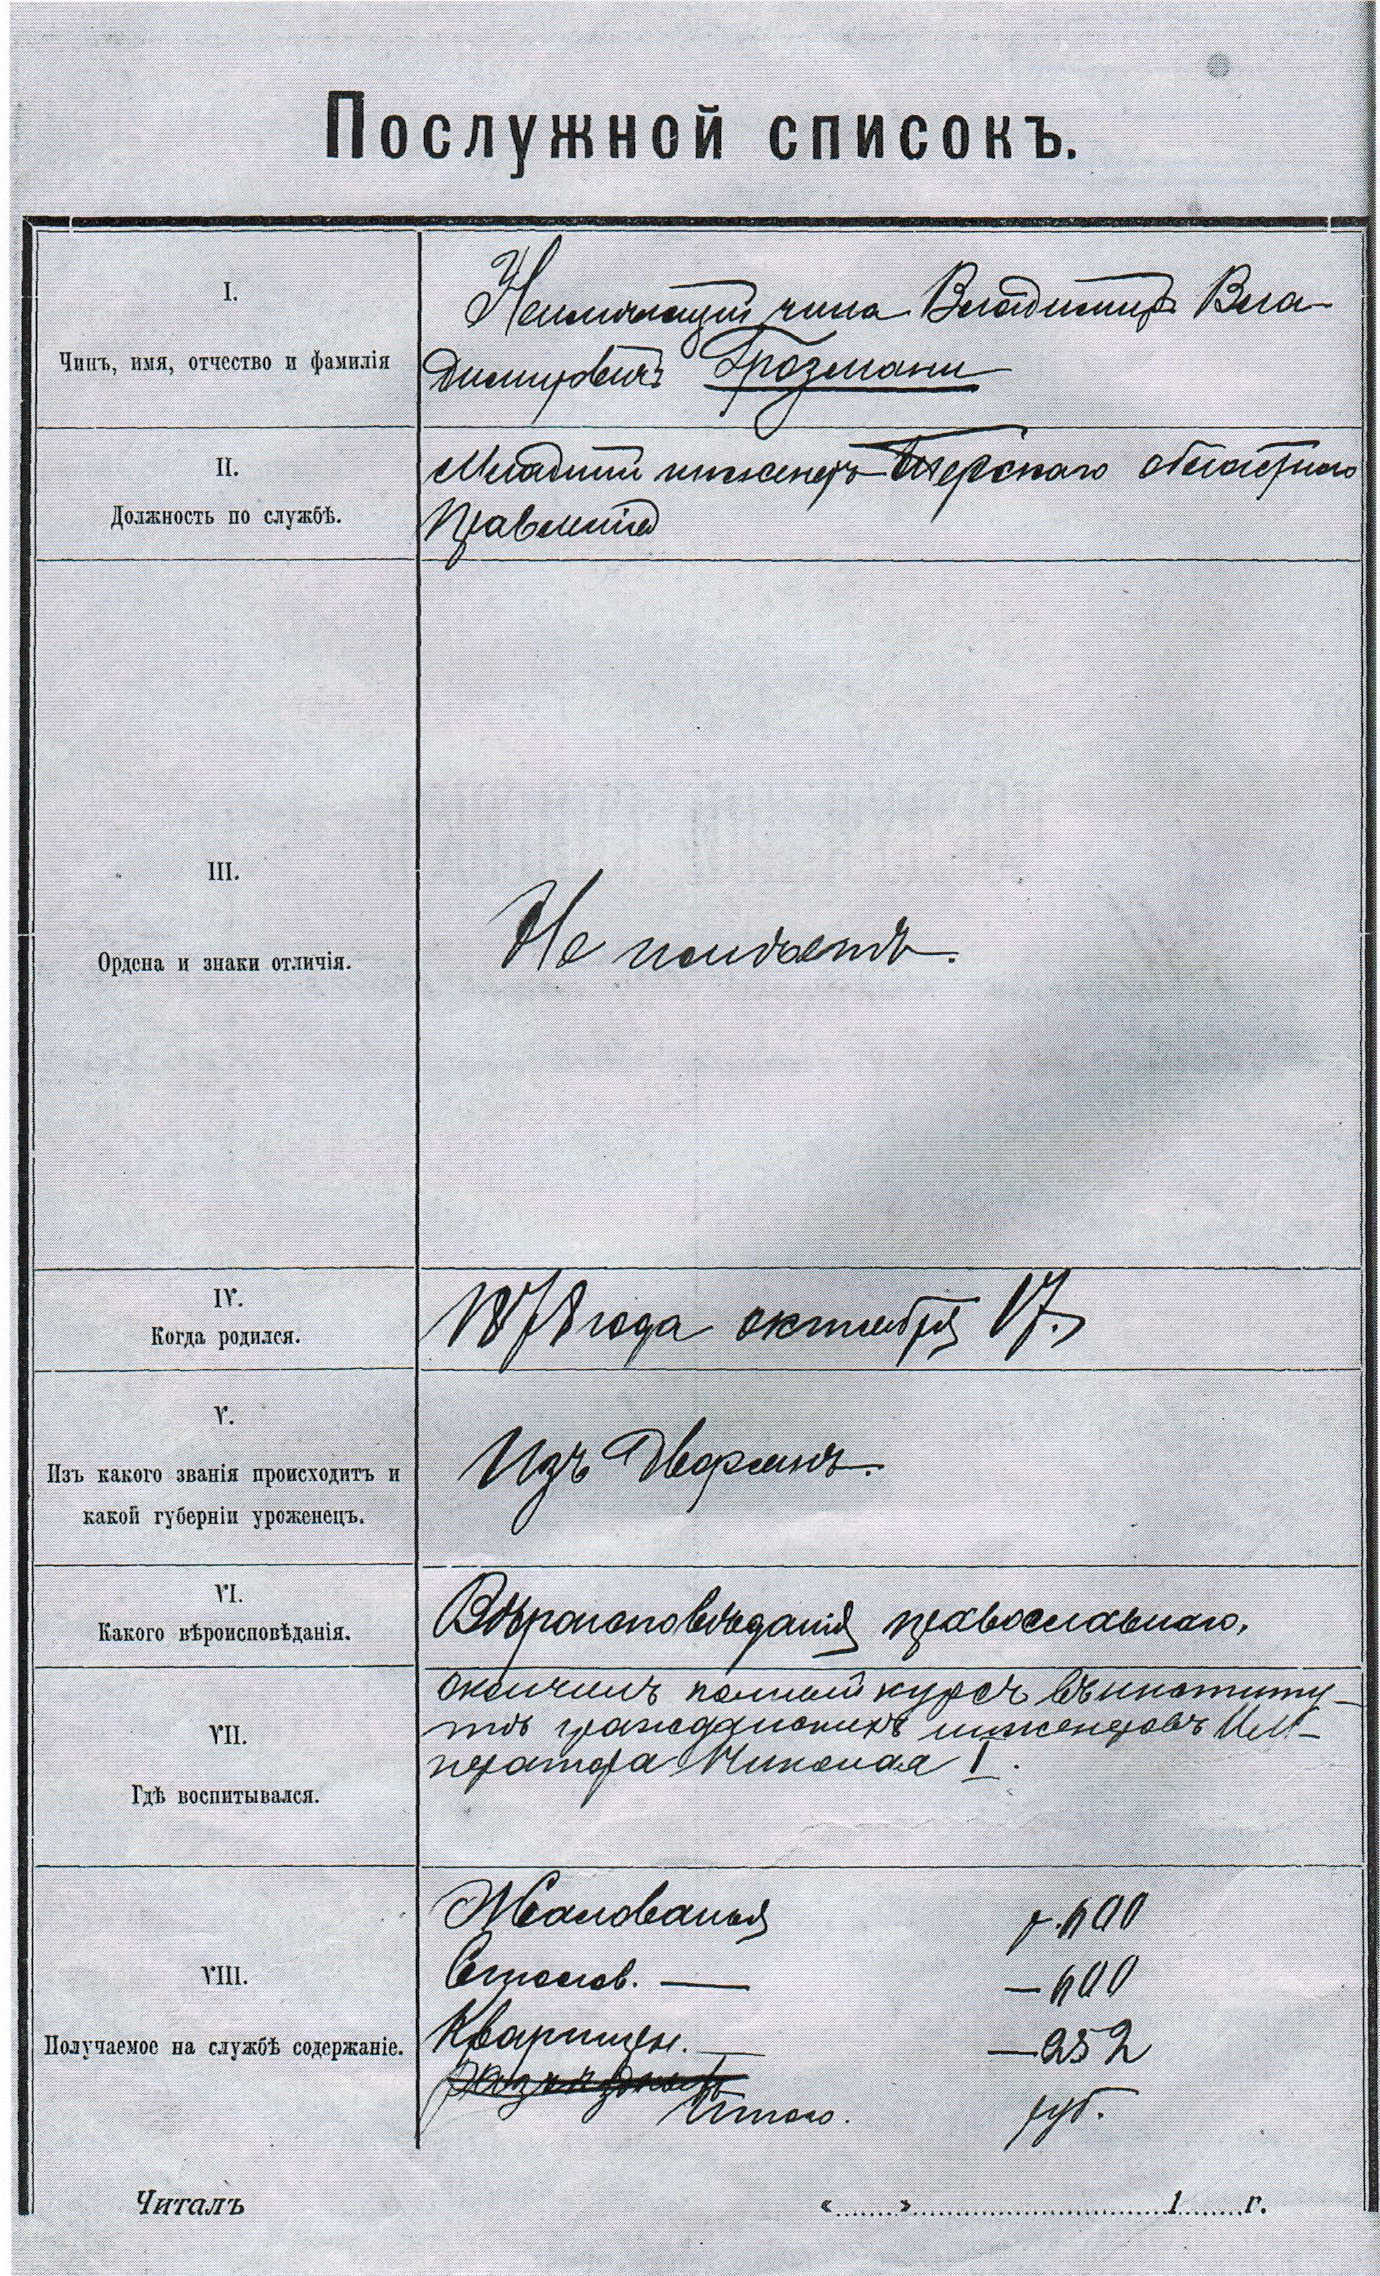 Послужной списокъ.
I.
Чинъ, имя, отчество и фамилія
Неимѣющій чина Владимиръ Вла-
димировичъ Грозмани
II.
Должность по службѣ.
Младшій инженеръ Терскаго областного
Правленія
III.
Ордена и знаки отличія.
Не имѣетъ.
IV.
Когда родился.
1878 года октября 17.
V.
Изъ какого званія происходитъ и
какой губерніи уроженецъ.
Изъ Дворянъ.
VI.
Какого вѣроисповѣданія.
Вѣроисповѣданія православнаго.
VII.
Гдѣ воспитывался.
окончилъ полный курсъ въ институ-
тѣ гражданскихъ инженеровъ Им-
ператора Николая I.
VIII.
Получаемое на службѣ содержаніе.
Жалованья р. 600
Столов. — — 600
Квартирн. — — 252
разъѣздныхъ
Итого. руб.
Читалъ
« » 1 г.